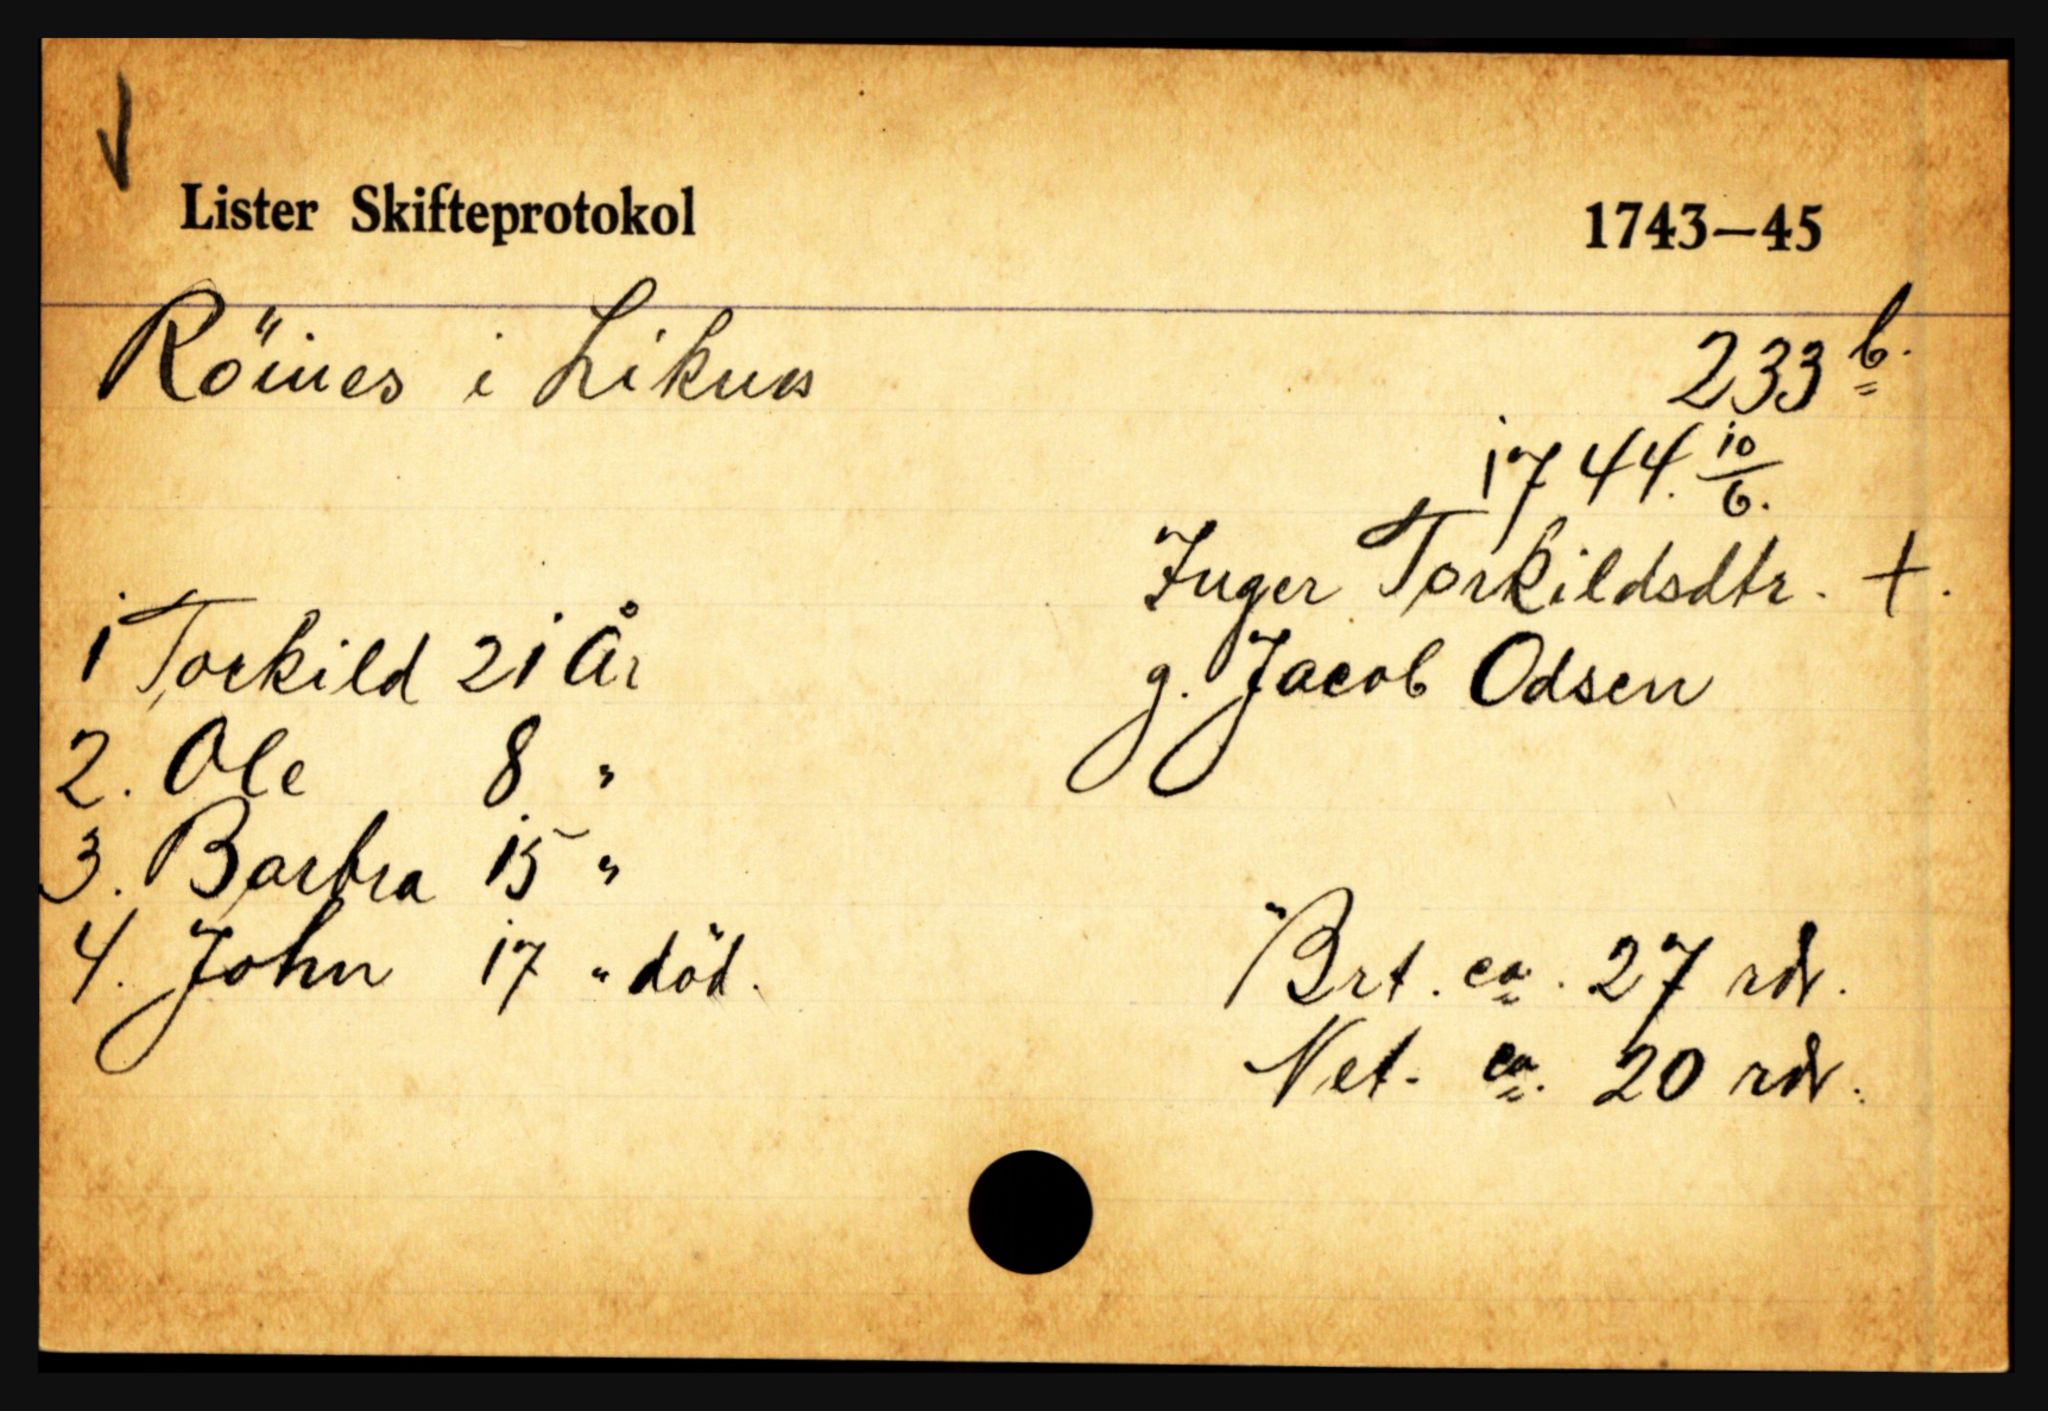 Lister Skifteprotokol 1743—45
Röines i Liknes
233 b.
1744. 10/6.
Inger Torkildsdtr. †.
g. Jacob Odsen
1 Torkild 21 År
2. Ole 8 "
3. Barbra 15 "
4. John 17 " död.
Brt. ca. 27 rdr.
Net. ca. 20 rdr.